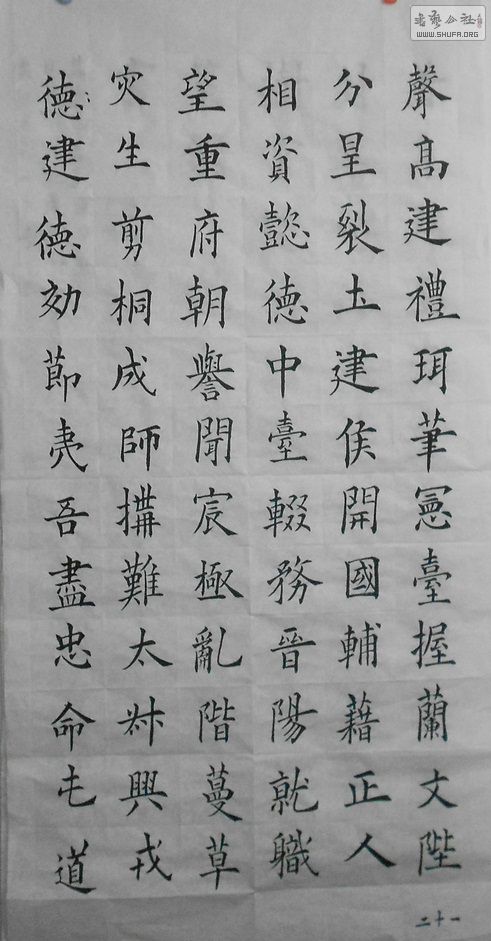 書藝公社
WWW.SHUFA.ORG
聲高建禮珥筆憲臺握蘭文陛
分星裂土建侯開國輔藉正人
相資懿德中臺輟務晉陽就職
望重府朝譽聞宸極亂階蔓草
灾生剪桐成師搆難太叔興戎
德建德効節夷吾盡忠命屯道
二十一